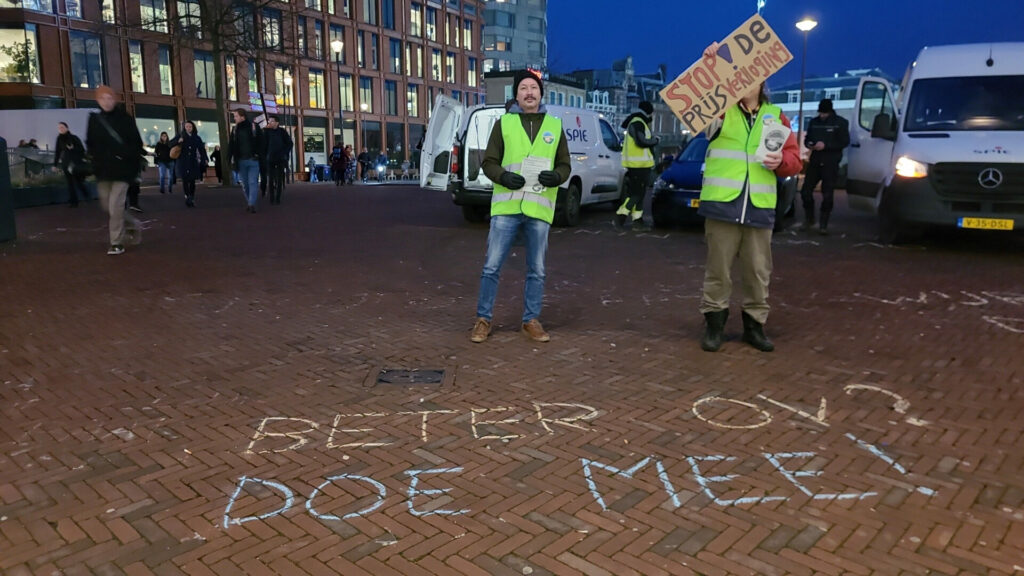 STOP DE
PRIJSVERHOGING
SPIE
SPIE
V-35-DSL
BETER OV?
DOE MEE!